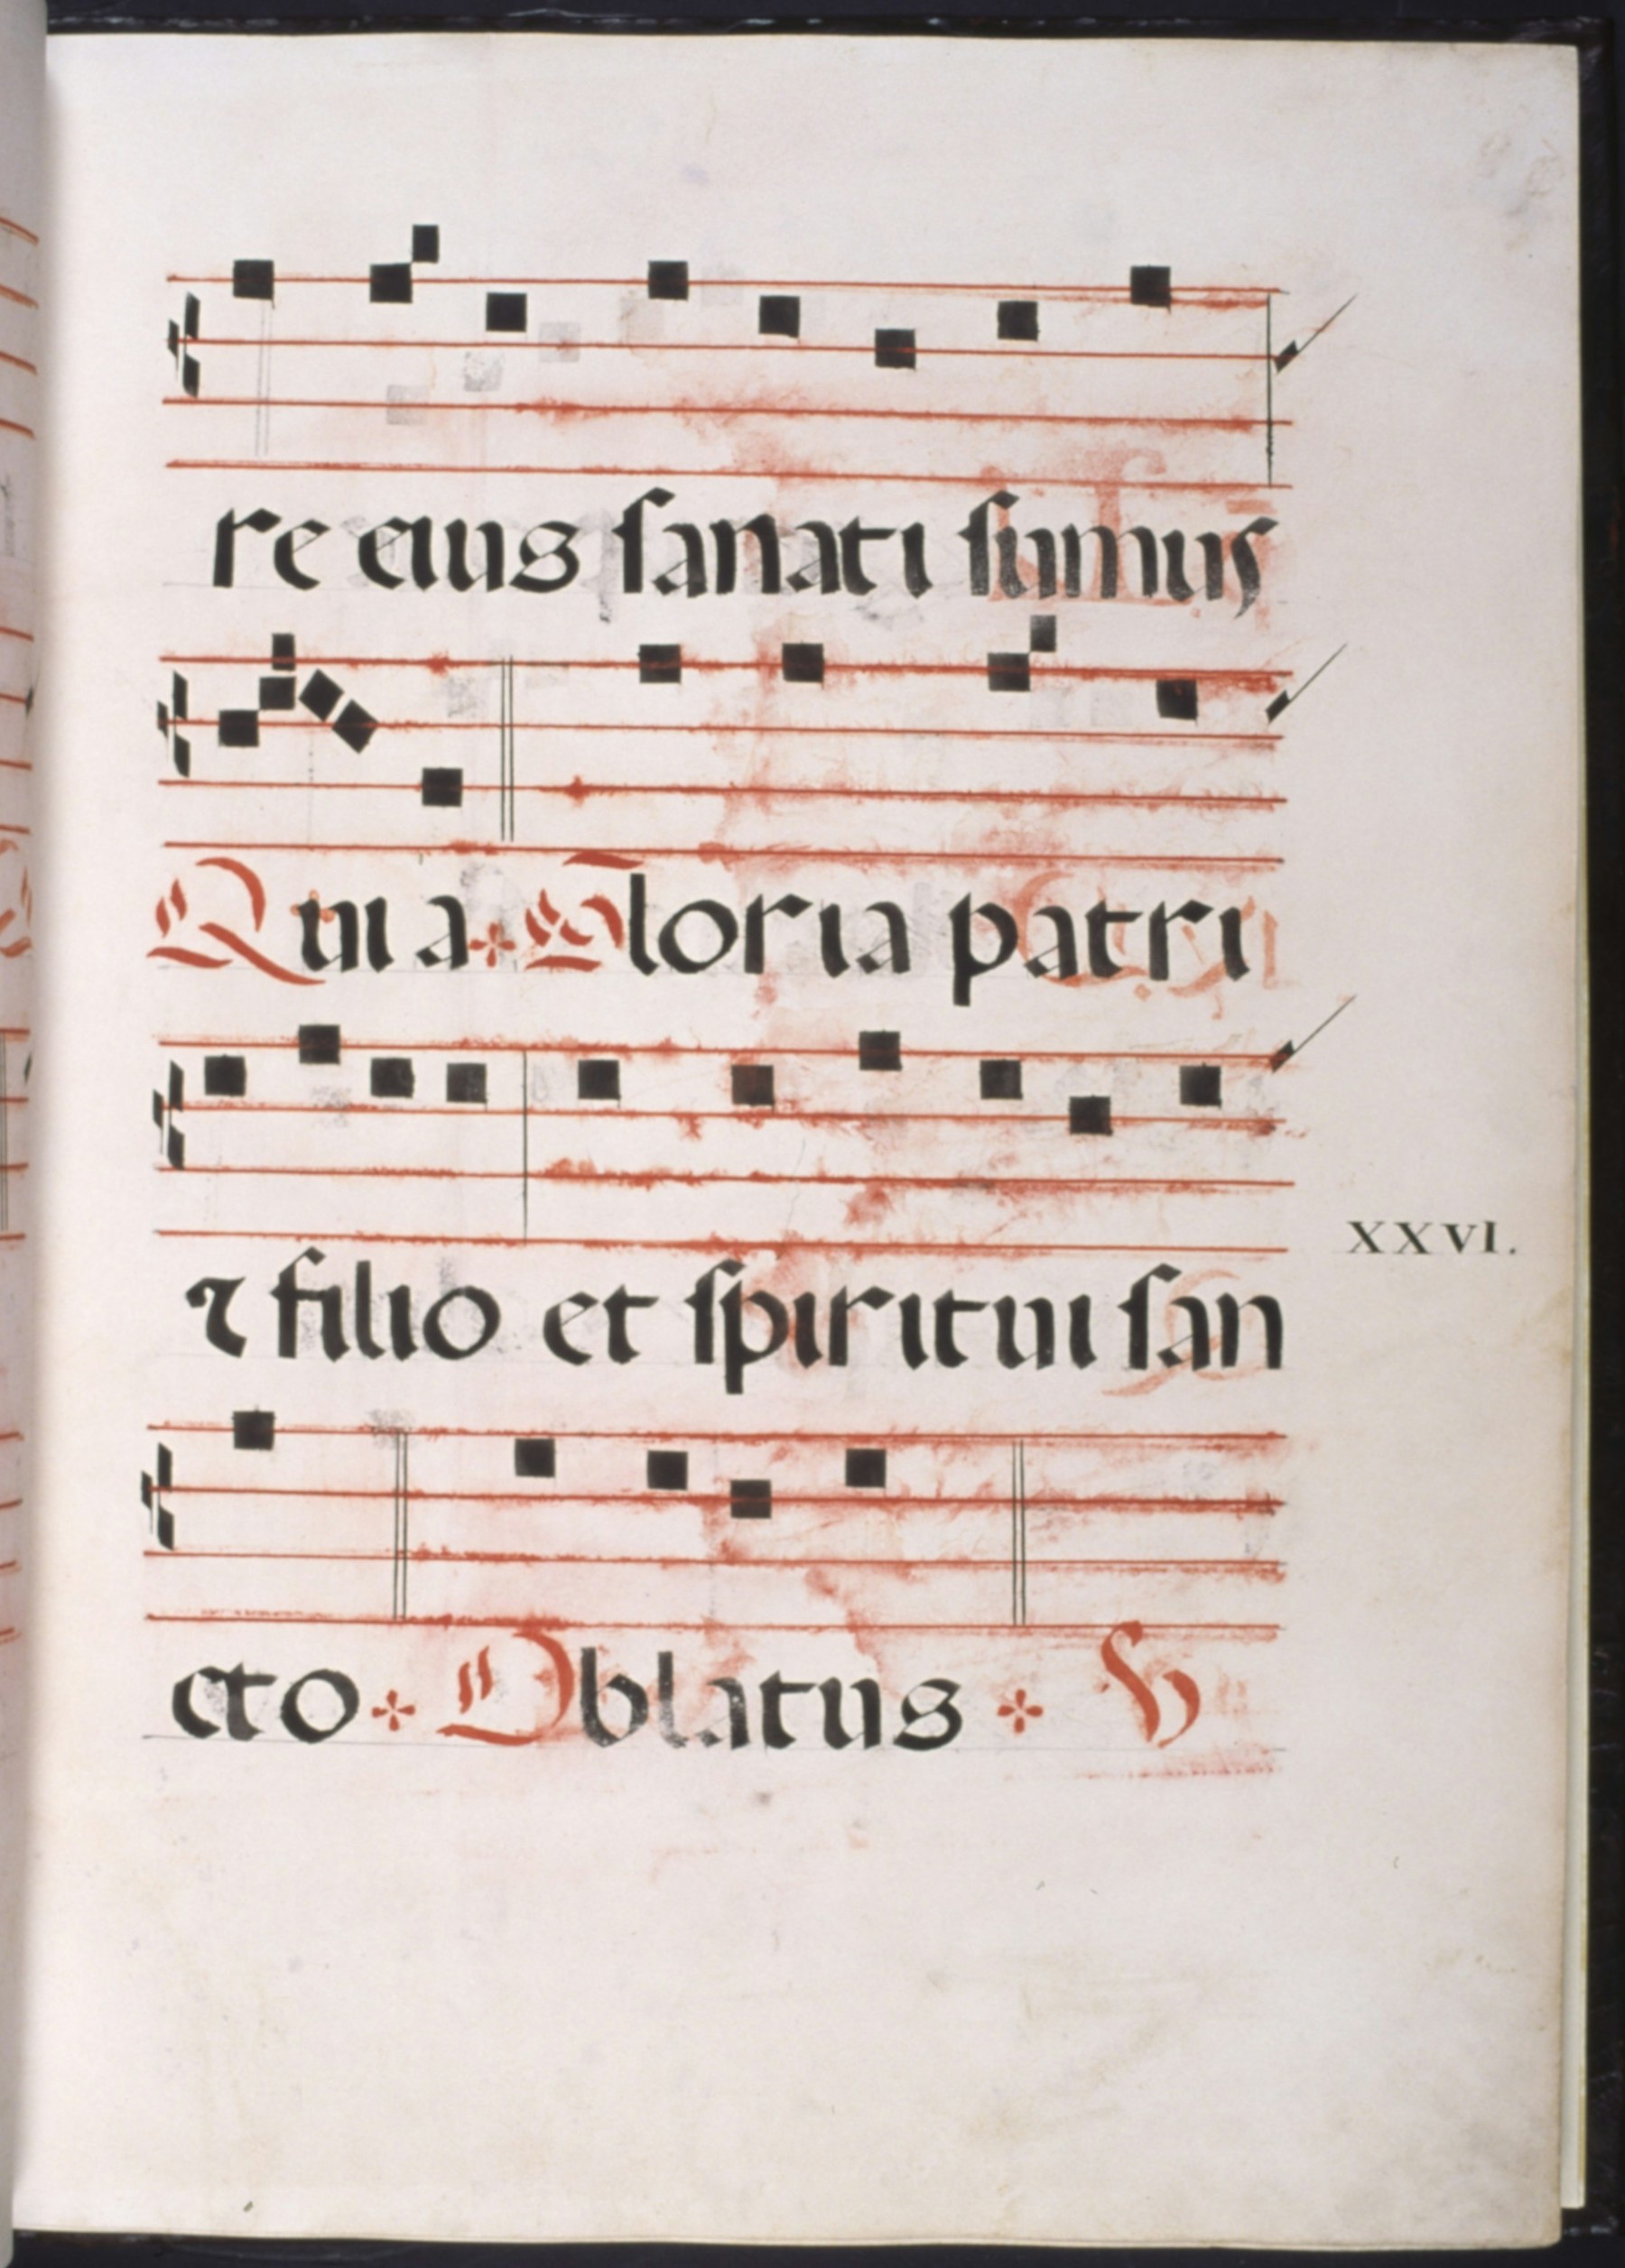 re eius sanati sumus
Quia Gloria patri
⁊ filio et spiritui san
XXVI.
cto Oblatus V